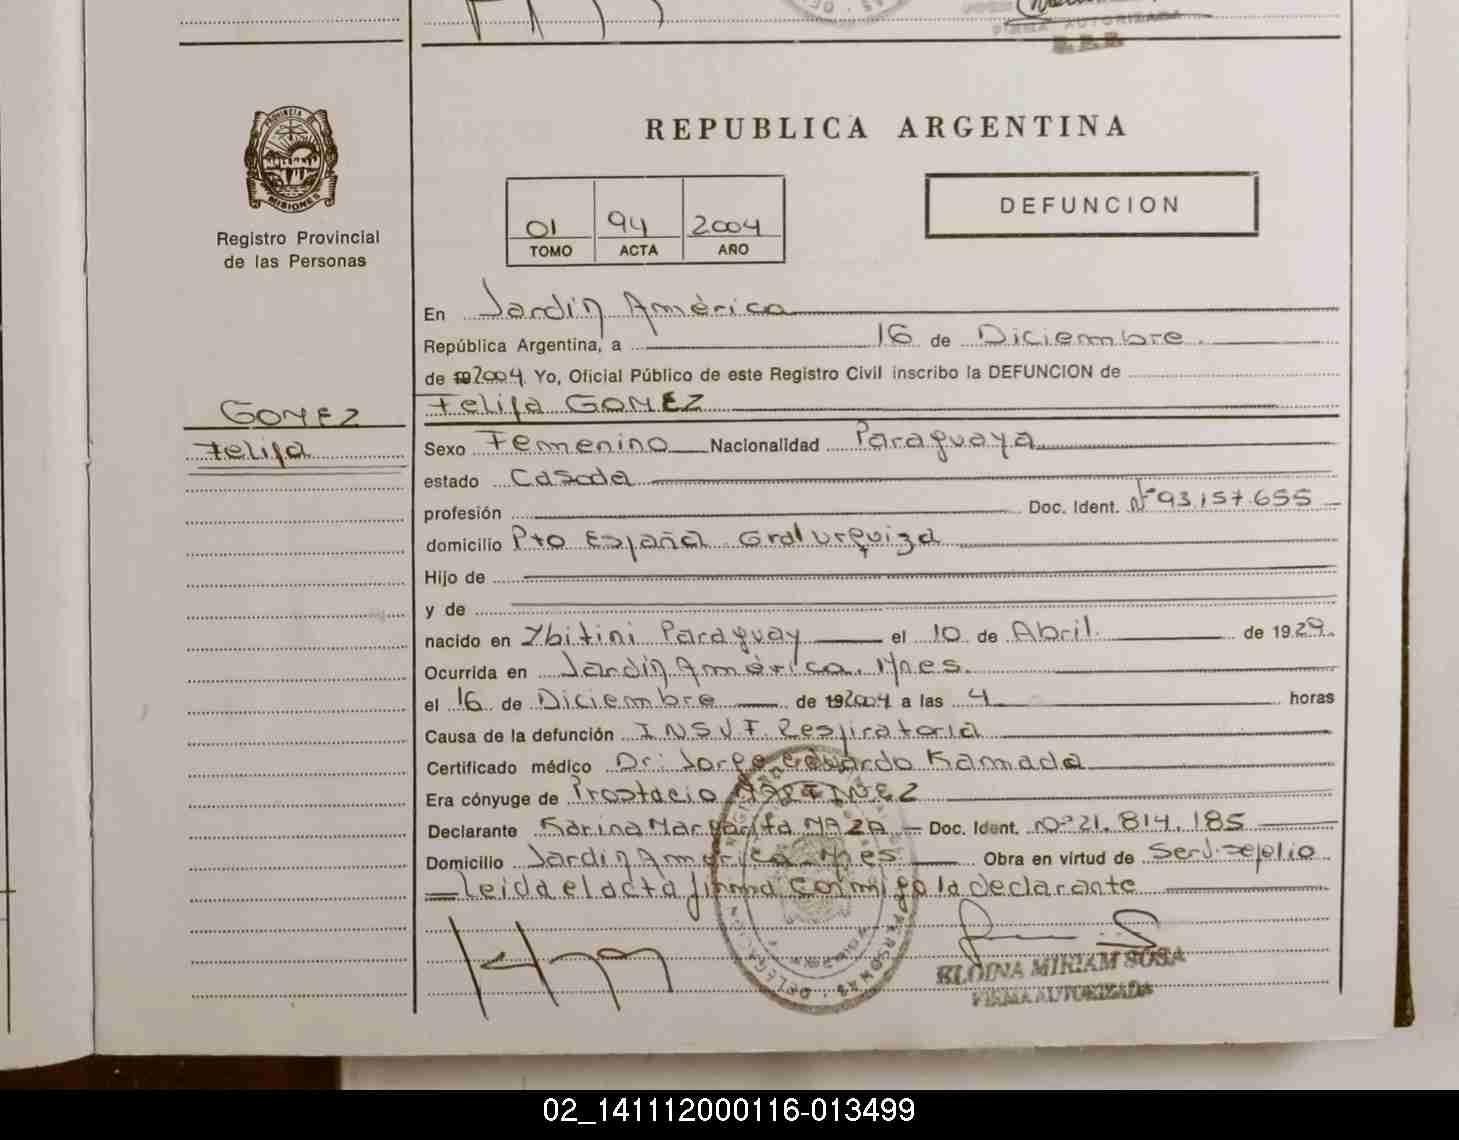 FIRMA AUTORIZADA
PROVINCIA DE
MISIONES
Registro Provincial
de las Personas
REPUBLICA ARGENTINA
01 94 2004
TOMO ACTA AÑO
DEFUNCION
GOMEZ
Felipa
En Jardín América
República Argentina, a 16 de Diciembre
de 19 2004. Yo, Oficial Público de este Registro Civil inscribo la DEFUNCION de
Felipa GOMEZ
Sexo Femenino Nacionalidad Paraguaya
estado Casada
profesión Doc. Ident. Nº 93.157.655
domicilio Pto España Gral Urquiza
Hijo de
y de
nacido en Ybitimi Paraguay el 10 de Abril de 1929.
Ocurrida en Jardín América. Mnes.
el 16 de Diciembre de 19 2004 a las 4 horas
Causa de la defunción INSUF. Respiratoria
Certificado médico Dr: Jorge Eduardo Kamada
Era cónyuge de MARTINEZ
Declarante Karina Margarita MAZA Doc. Ident. Nº 21.814.185
Domicilio Jardín América Mnes Obra en virtud de Serv. Sepelio
Leida el acta firma conmigo la declarante
ELOINA MIRIAM SOSA
FIRMA AUTORIZADA
02_141112000116-013499